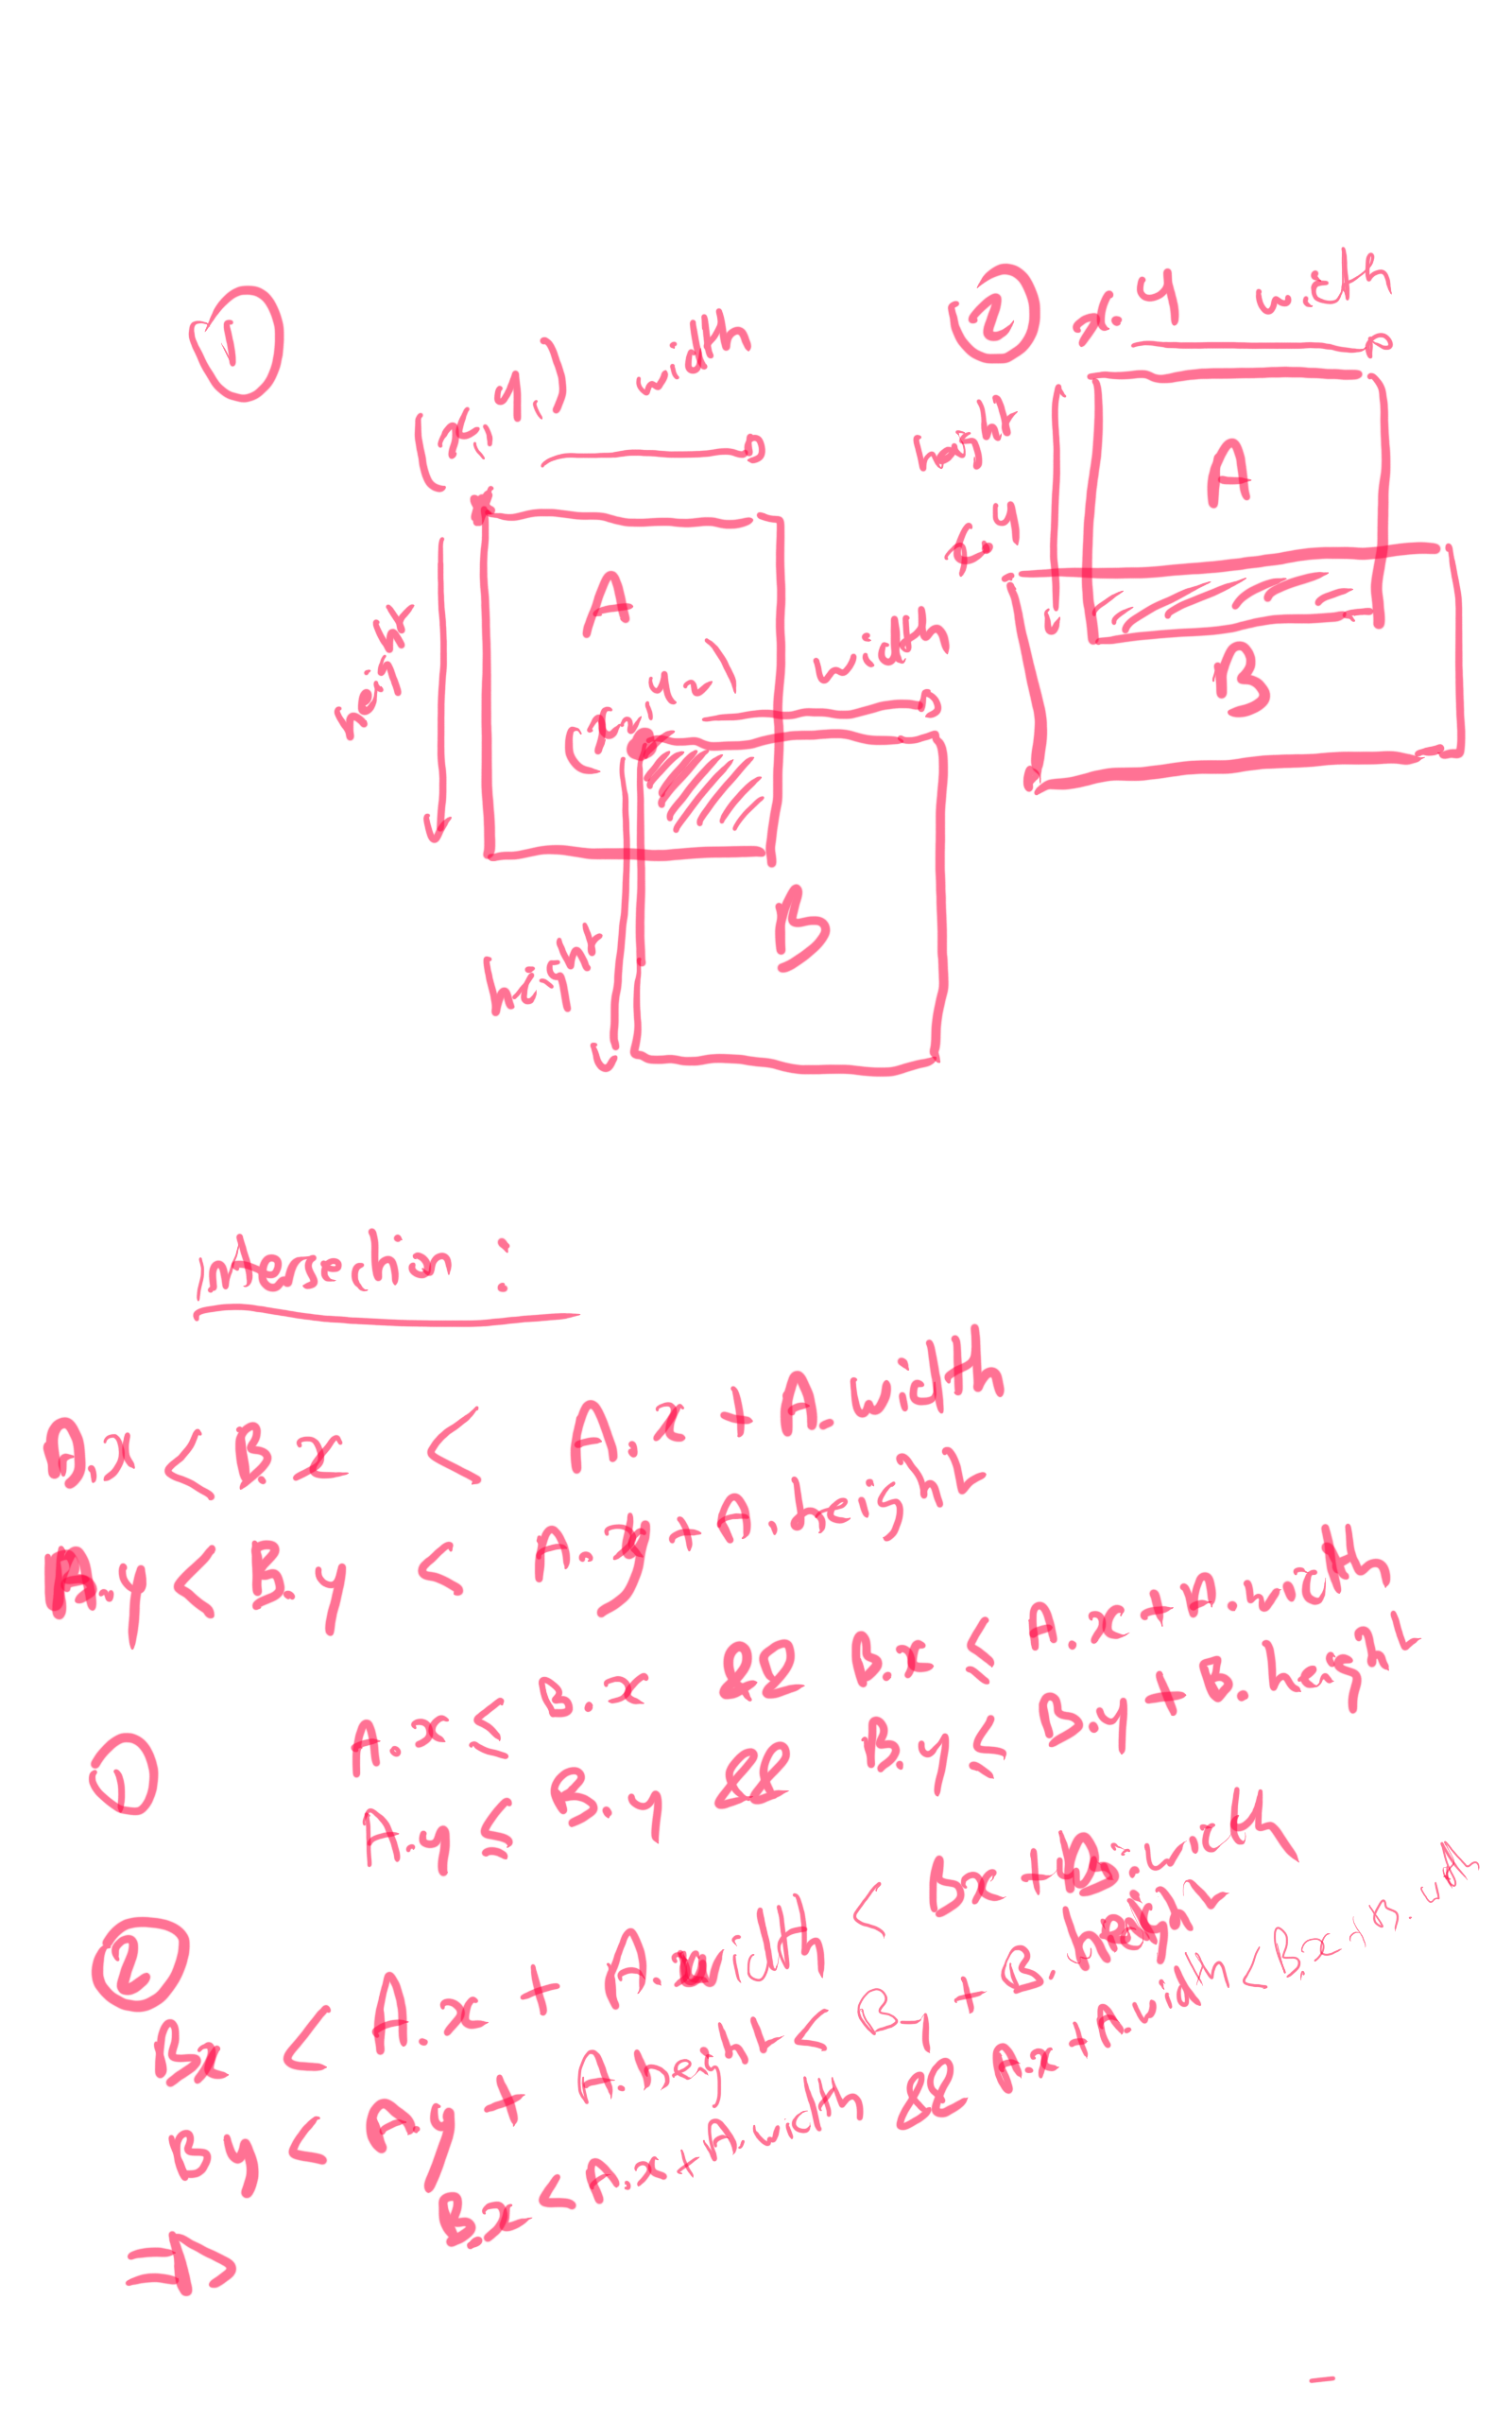 1
(x, y)
width
A
height
(x, y)
width
B
height
2
x.y
width
height
A
x.y
B
intersection :
A.x < B.x < A.x + A.width
A.y < B.y < A.y + A.height
1
A.x ≤ B.x && B.x ≤ A.x + A.width
A.y ≤ B.y && B.y ≤ B.y + B.height
2
B.x < A.x + A.width < B.x + B.width
B.y < A.y + A.height < B.y + B.height
⇒ B.x < A.x + A.width && A.x + A.width < B.x + B.width